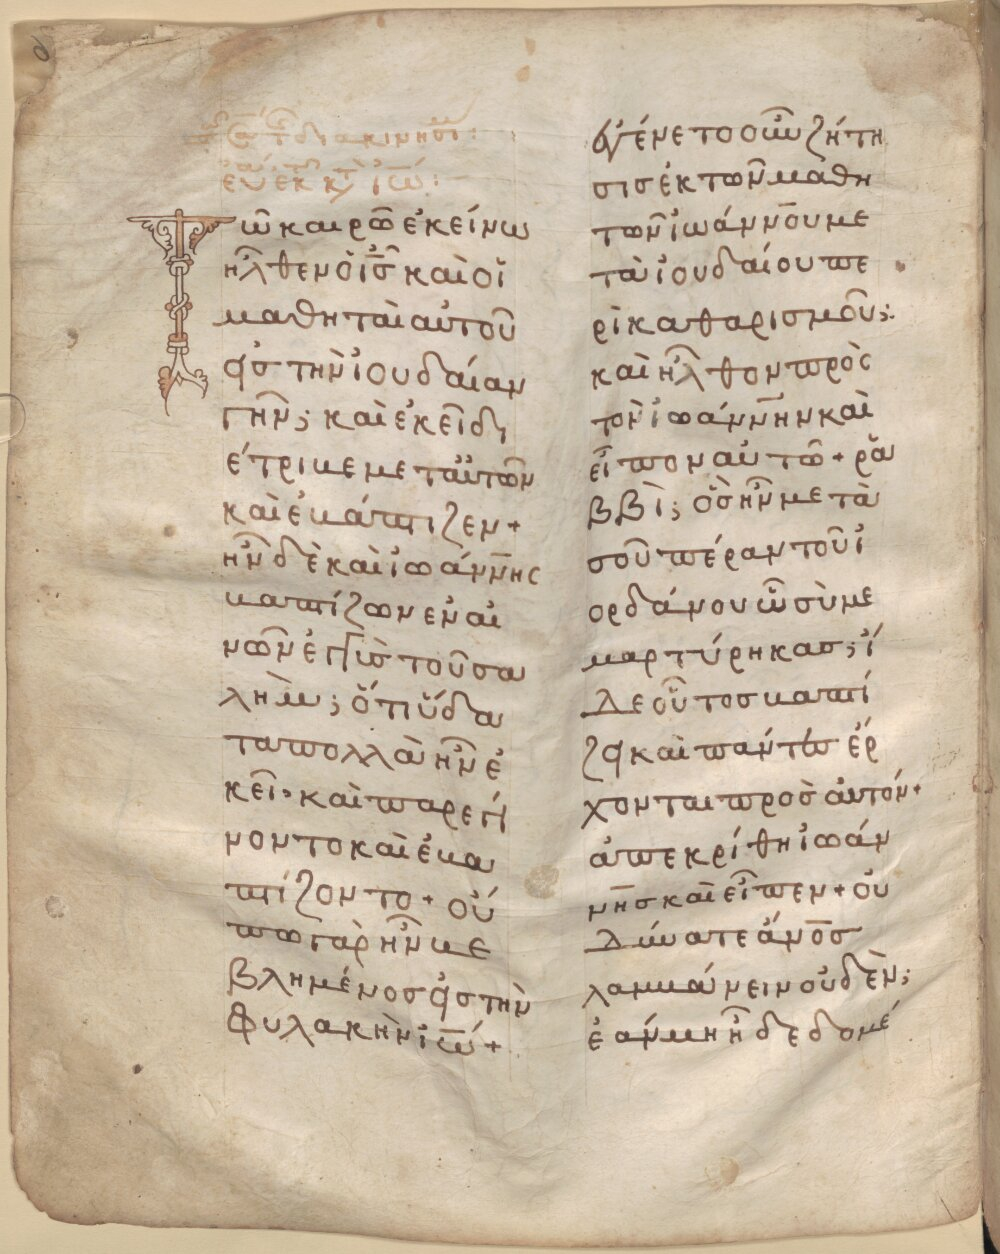 Τῶ καιρῶ ἐκείνω
ἦλθεν ὁ ις καὶ οἱ
μαθηταὶ αὐτοῦ
εἰς τὴν ἰουδαίαν
γῆν; καὶ ἐκεῖ δι
έτριβε μετ αὐτῶν
καὶ ἐβάπτιζεν+
ἦν δὲ καὶ ἰωάννης
βαπτίζων ἐν αἰ
νῶν ἐγγὺς τοῦ σα
λήμ; ὅτι ὕδα
τα πολλὰ ἦν ἐ
κεῖ· καὶ παρεγί
νοντο καὶ ἐβα
πτίζοντο+ οὔ
πω γὰρ ἦν βε
βλημένος εἰς τὴν
φυλακὴν ἰω+
ἐγένετο οὖν ζήτη
σις ἐκ τῶν μαθη
τῶν ἰωάννου με
τὰ ἰουδαίου πε
ρὶ καθαρισμοῦ;
καὶ ἦλθον πρὸς
τὸν ἰωάννην καὶ
εἶπον αὐτῶ+ ρα
ββὶ; ὃς ἦν μετὰ
σοῦ πέραν τοῦ ἰ
ορδάνου ὧ σὺ με
μαρτύρηκας; ἴ
δε οὗτος βαπτί
ζει καὶ πάντες ἔρ
χονται πρὸς αὐτόν+
ἀπεκρίθη ἰωάν
νης καὶ εἶπεν+ οὐ
δύναται ἄνος
λαμβάνειν οὐδὲν;
ἐὰν μὴ ἦ δεδομέ